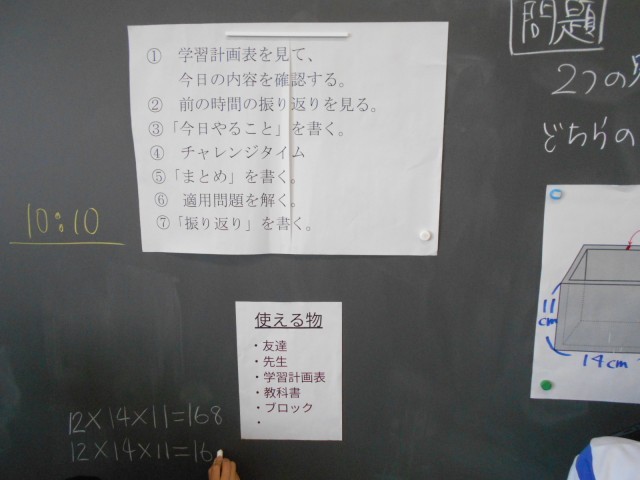 ① 学習計画表を見て、
今日の内容を確認する。
② 前の時間の振り返りを見る。
③「今日やること」を書く。
④ チャレンジタイム
⑤「まとめ」を書く。
⑥ 適用問題を解く。
⑦「振り返り」を書く。
問題
2つの
どちらの
10:10
11
cm
14cm
使える物
・友達
・先生
・学習計画表
・教科書
・ブロック
・
12×14×11=168
12×14×11=16